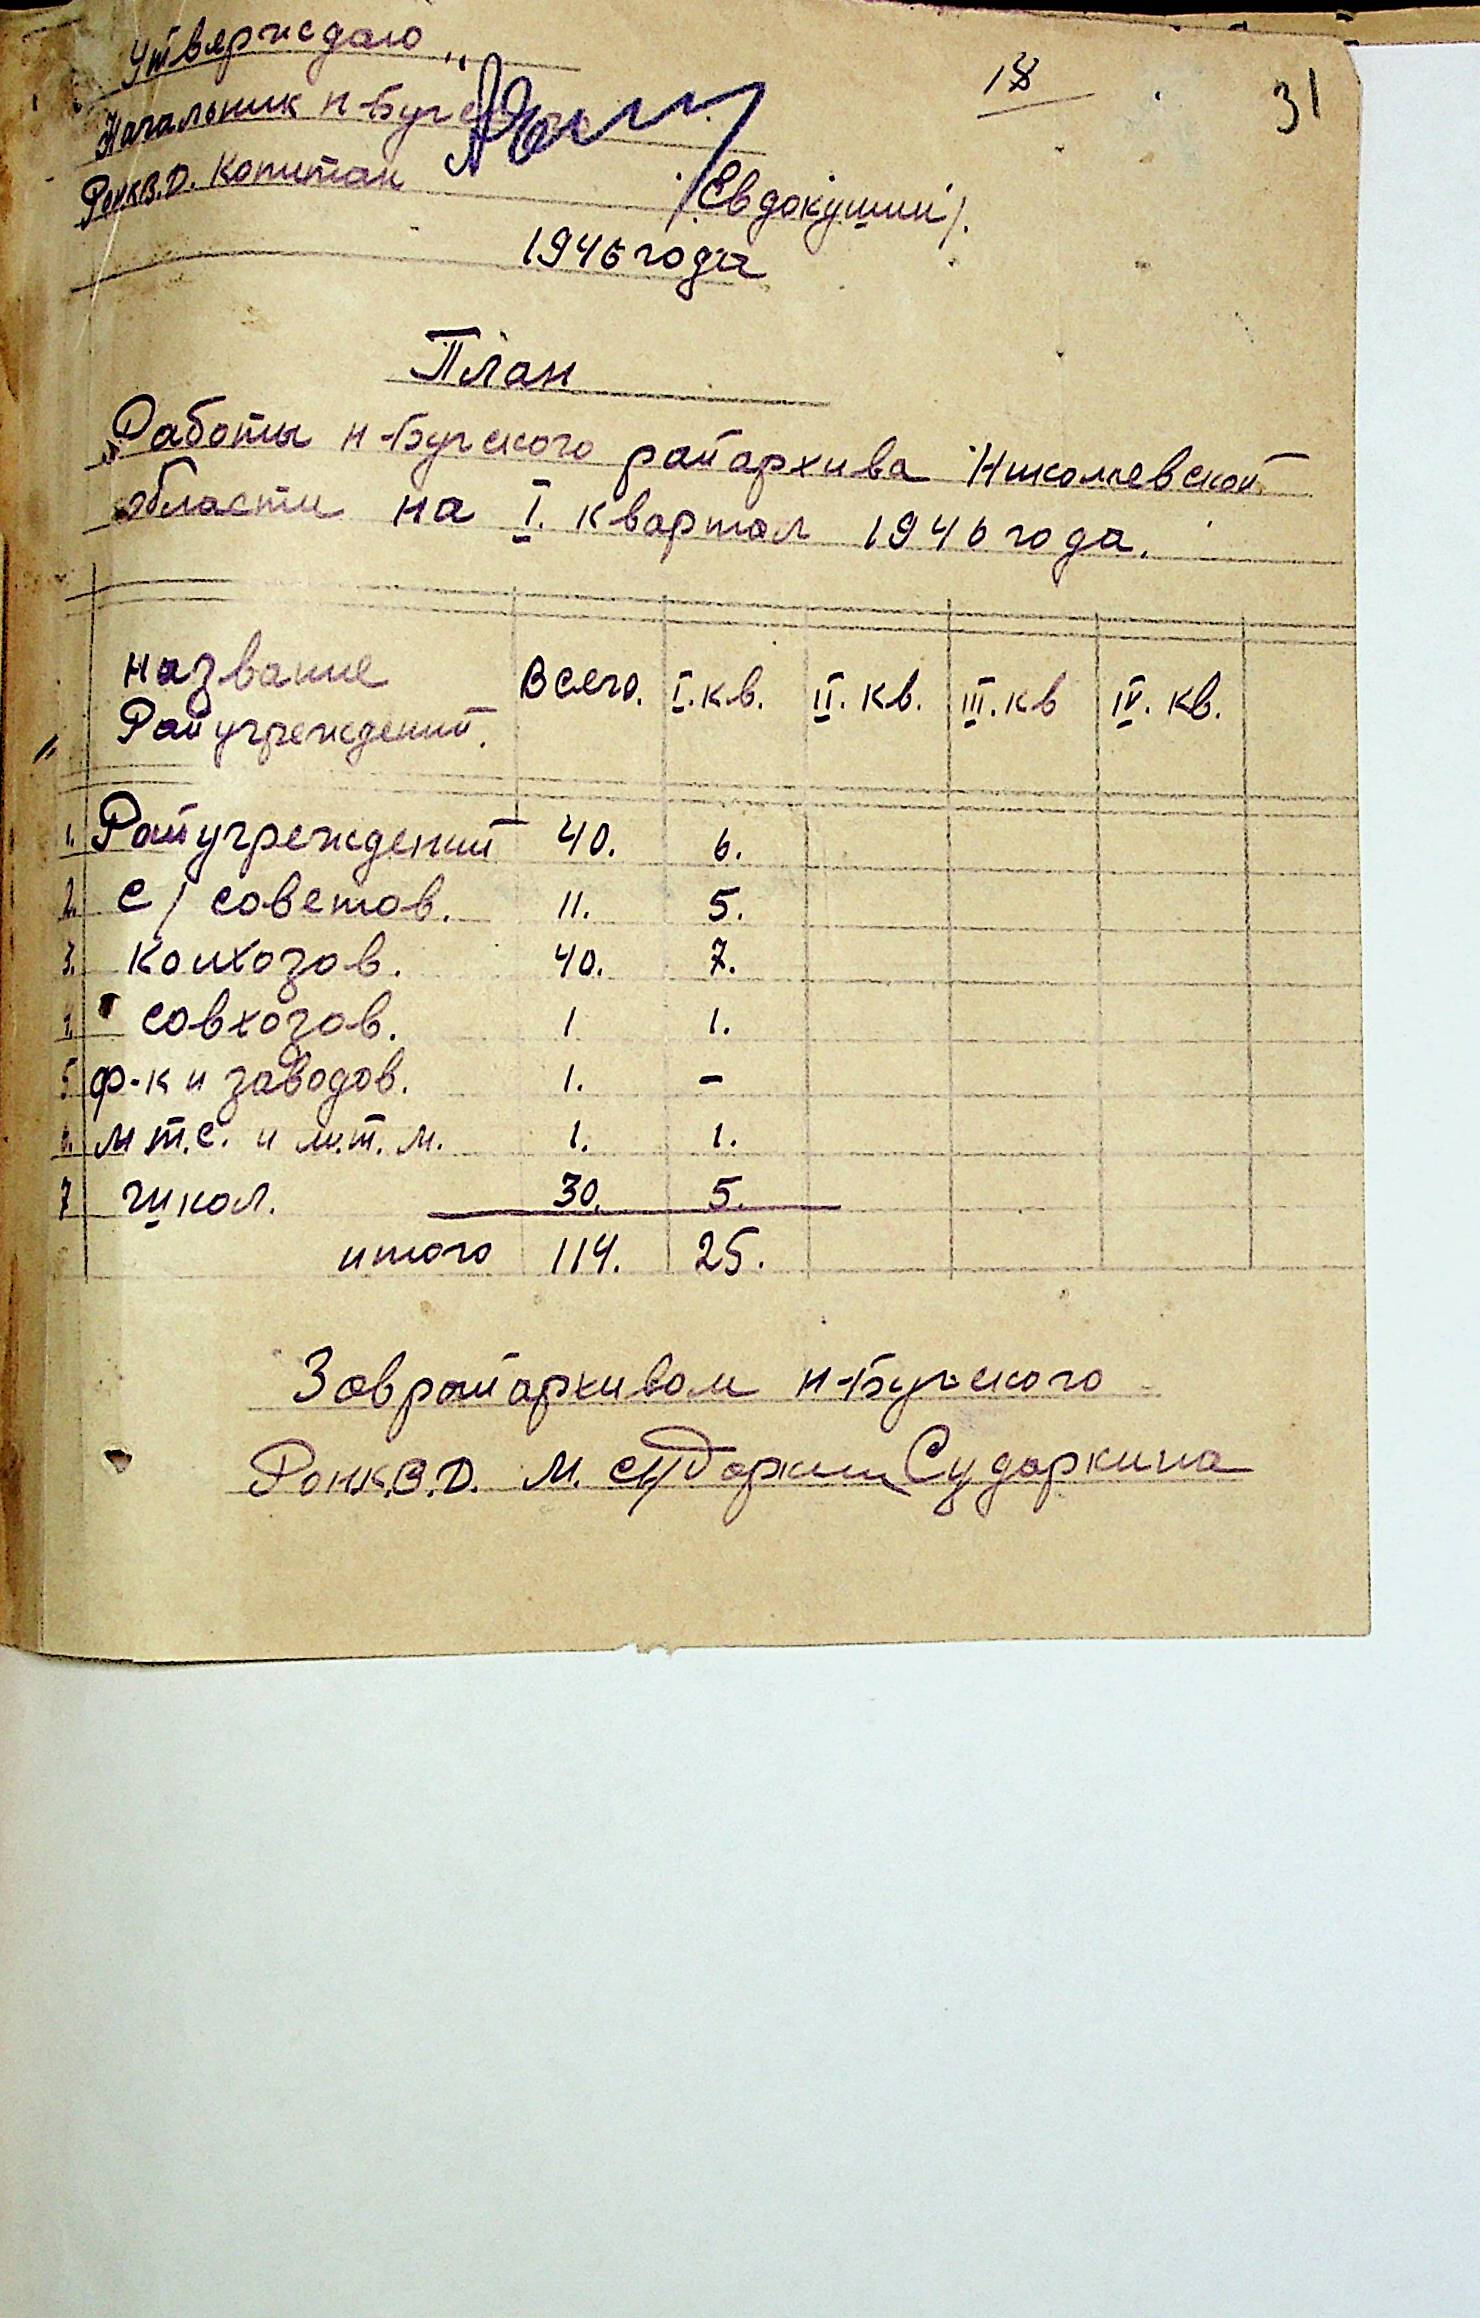 Утвержаю"
18
31
Начальник Н-Бугск
РонКВ.Д. Копитан
/Евдокушин/.
1946 года
План
Работы Н-Бугского райархива Николаевской
области на I. квартал 1946 года.
Название Всего. I.кв. II. кв. III. кв IV. кв.
Райучреждений.
1. Райучреждений 40. 6.
2. С/советов. 11. 5.
3. Колхозов. 40. 7.
4. Совхозов. 1 1.
5 ф-к и заводов. 1. -
6. М.Т.С. и М.Т.М. 1. 1.
7 Школ. 30. 5.
итого 114. 25.
Заврайархивом Н-Бугского
РонК.В.Д. М. Сударкин Сударкина